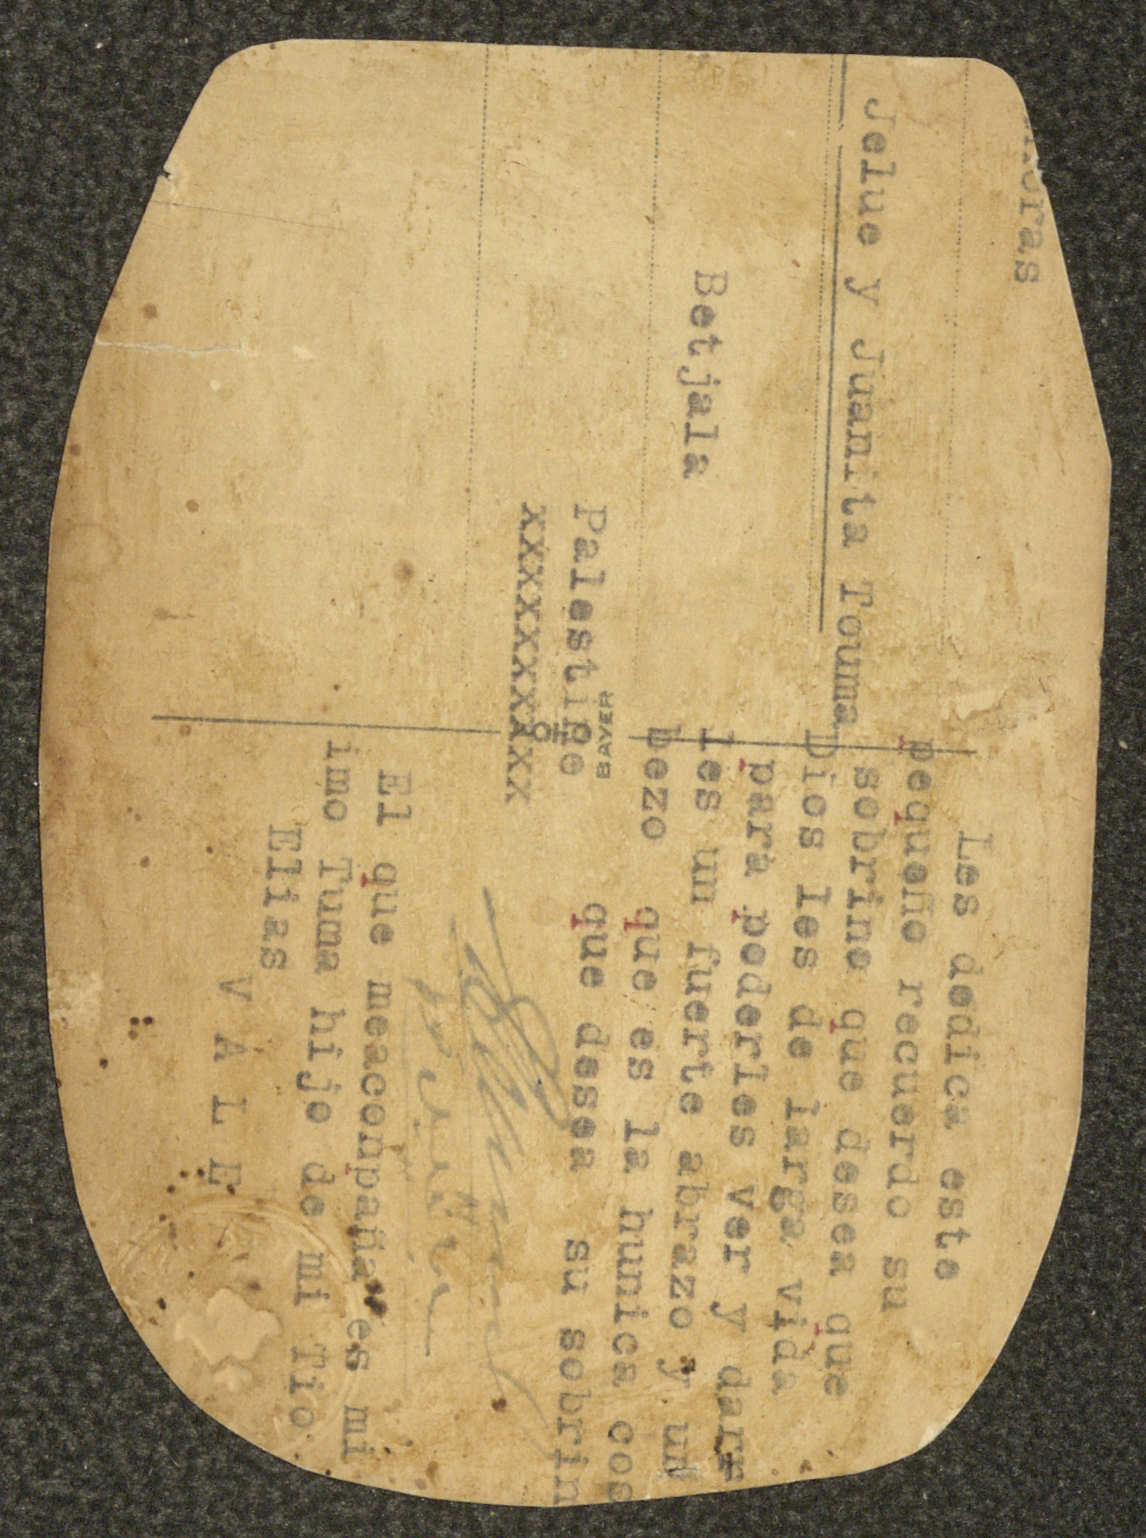 oras
Jelue y Juanita Touma
Betjala
Palestine
XXXXXXXXXXX
BAYER
Les dedica este
pequeño recuerdo su
sobrino que desea que
Dios les de larga vida
para poderles ver y darr
les un fuerte abrazo y un
bezo que es la hunica cos
que desea su sobrin
El que meaconpaña es mi
imo Tuma hijo de mi Tio
Elias
V A L E